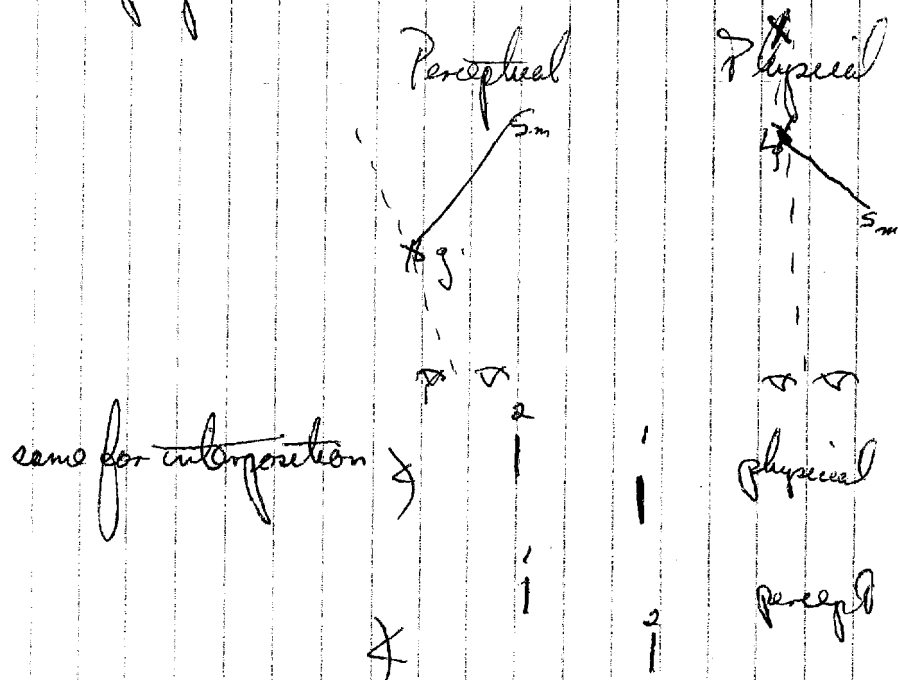 Perceptual Physical
Sm
Sm
g
same for interposition
2
1
physical
1
2
percept